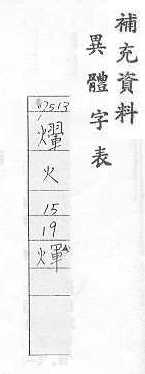 補充資料
異體字表
7513
燿
火
15
19
煇